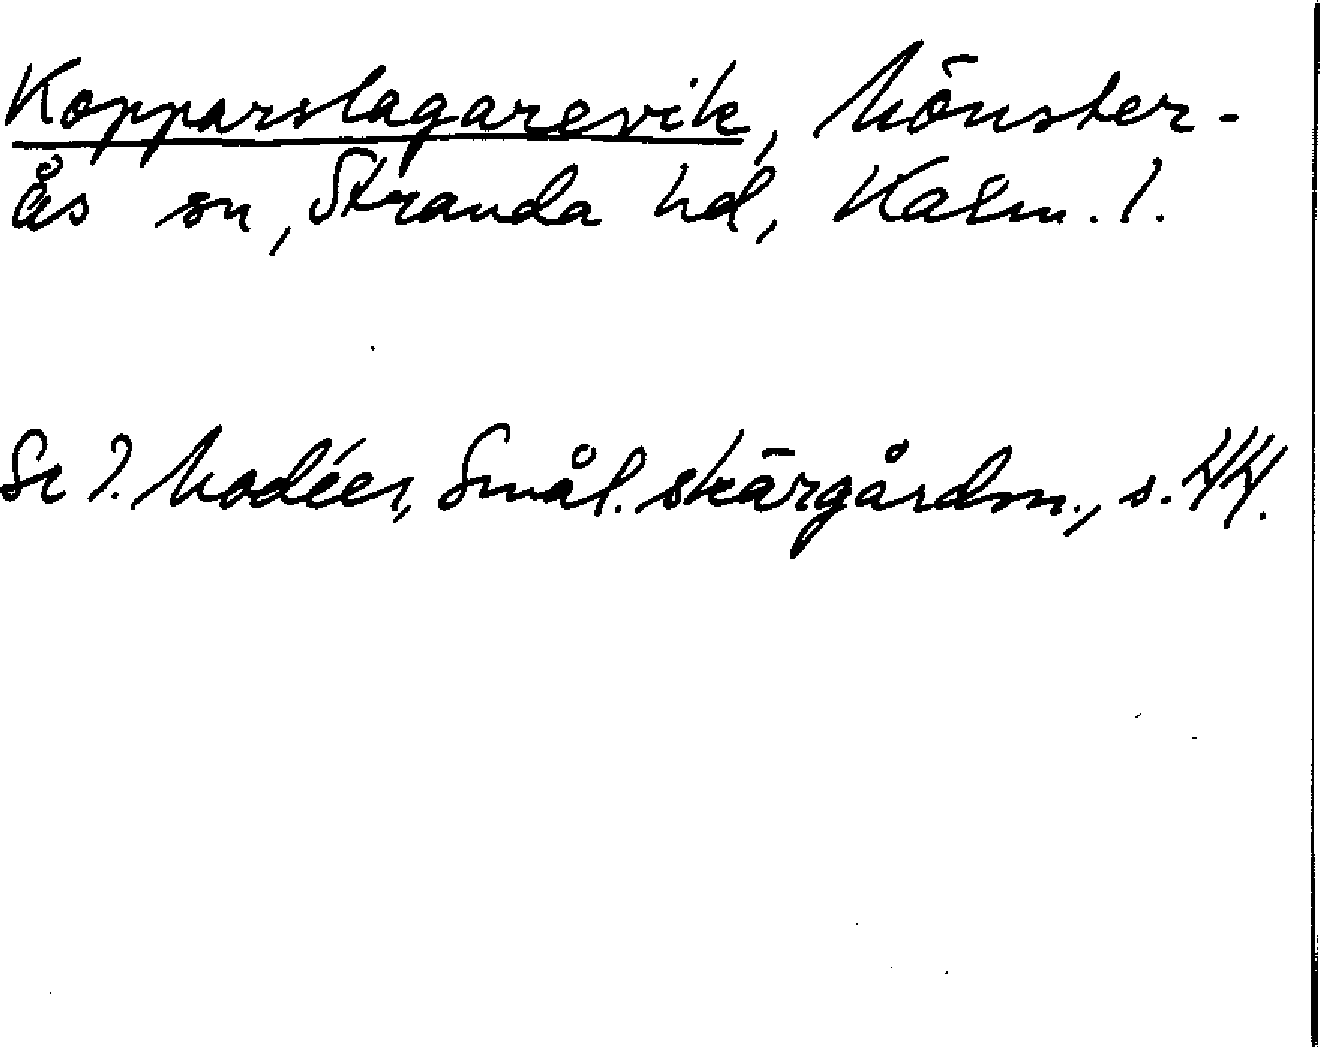 Kopparslagarevik, Mönster-
ås sn, Stranda hd, Kalm. l.
Se I. Modéer, Smål. skärgårdsn., s. 44.